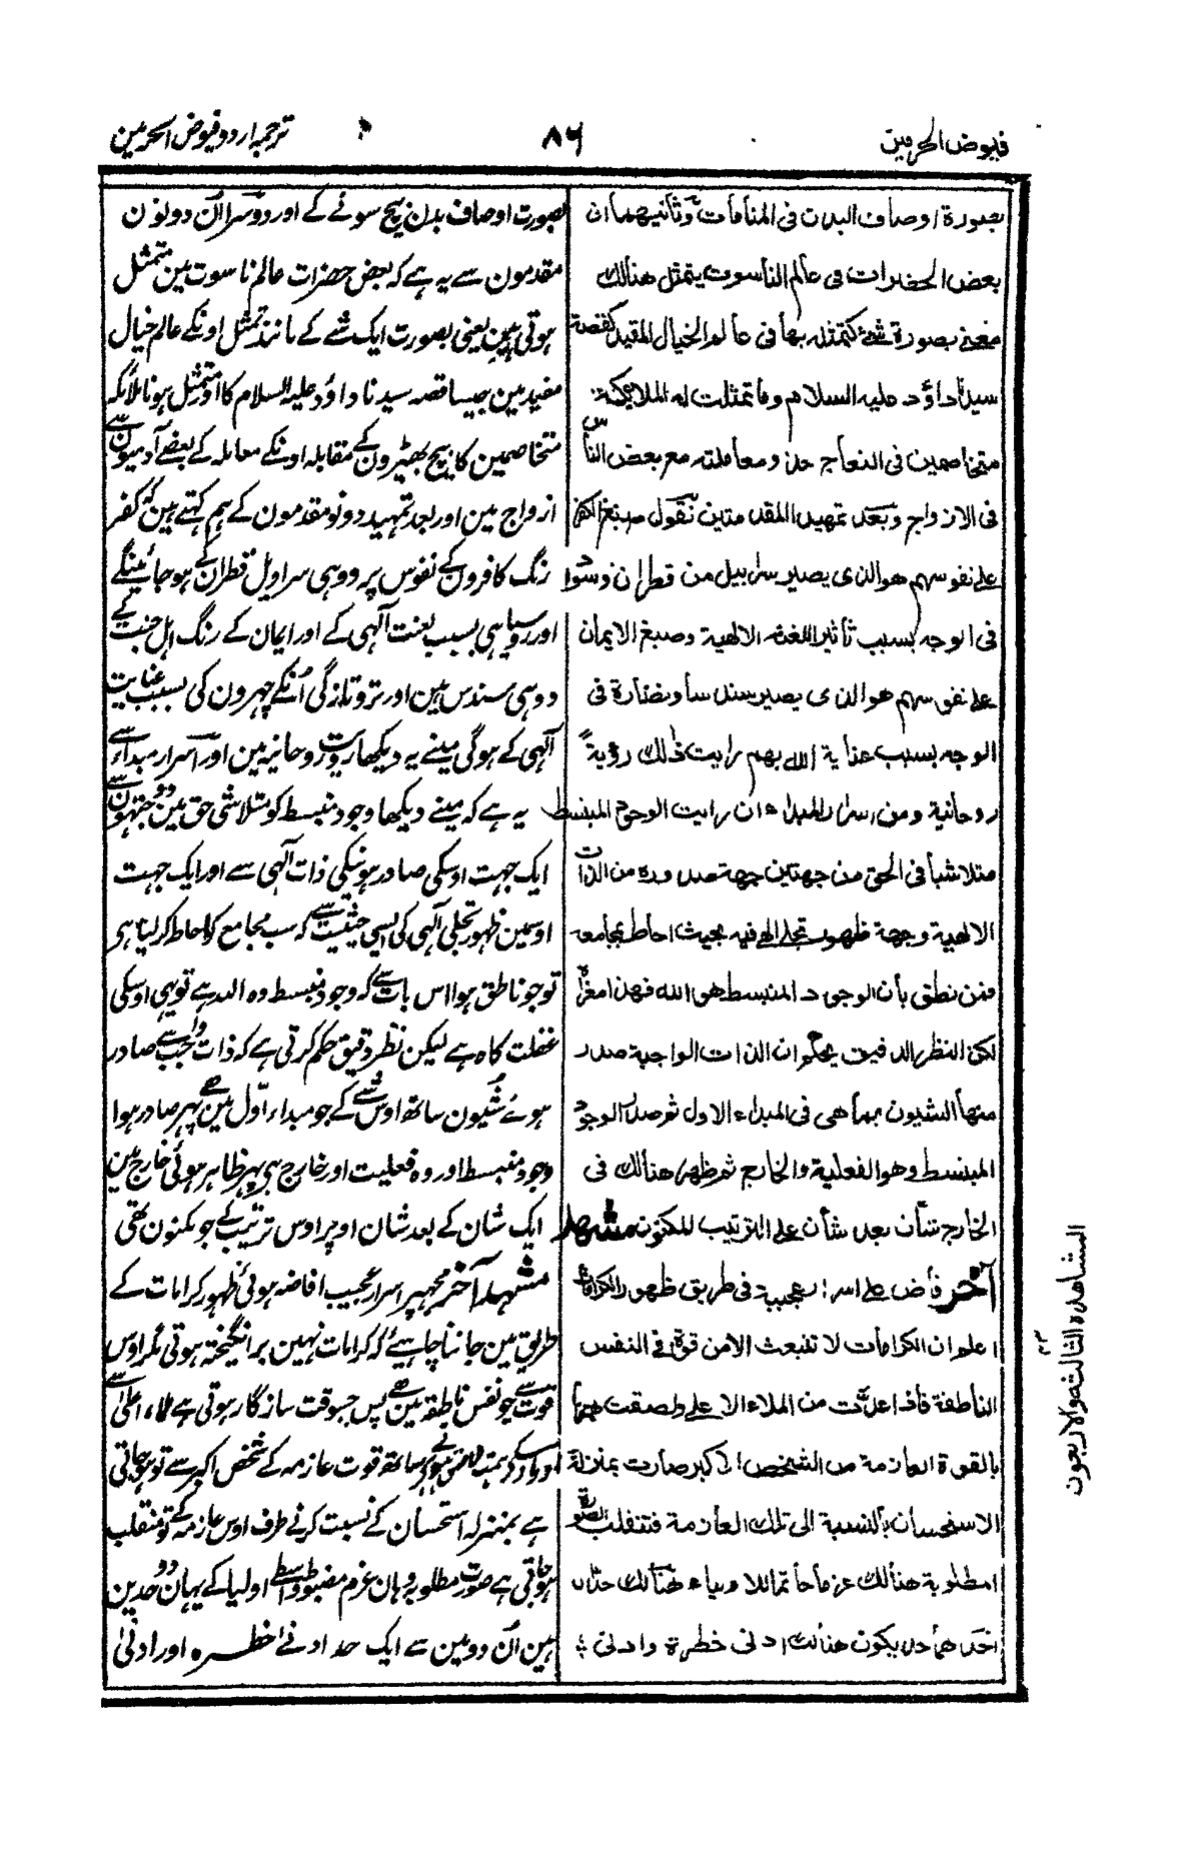 فيوض الحرمين
۸۶
ترجمہ اردو فیوض الحرمین
بصورة اوصاف البدن فى المنامات وثانيهما ان
بعض الحضرات فى عالم الناسوت يتمثل هنالك
معنے بصورة شئ كتمثله بها فى عالم الخيال المقيد كقصة
سيدنا داؤد عليه السلام وما تمثلت له الملائكة
متخاصمين فى النعاج حذو معاملته مع بعض الناس
فى الازواج وبعد تمهيد المقدمتين نقول صبغ الكفر
على نفوسهم هو الذى يصير سرابيل من قطران وسوادا
فى الوجه بسبب تأثير اللعنة الالهية وصبغ الايمان
على نفوسهم هو الذى يصير سندسا ونضارة فى
الوجه بسبب عناية الله بهم رايت ذلك رؤية
روحانية ومن اسرار المبداء ان رايت الوجود المنبسط
متلاشيا فى الحق من جهتين جهة صدوره من الذات
الالهية وجهة ظهور تجلى الٰهى فيه بحيث احاط بمجامعه
فمن نطق بأن الوجود المنبسط هو الله فهذا مغزاه
لكن النظر الدقيق يحكم ان الذات الواجبة صدر
منها الشيون بما هى فى المبداء الاول ثم صدر الوجود
المنبسط وهو الفعلية والخارج ثم ظهر هنالك فى
الخارج شأن بعد شأن على الترتيب المكنون مشهد
آخر فأض على اسرار عجيبة فى طريق ظهور الكرامات
اعلم ان الكرامات لا تنبعث الا من قوة فى النفس
الناطقة فاذا اعدت من الملاء الاعلى ولصقت همتها
بالقوة العازمة من الشخص الاكبر صارت بمنزلة
الاستحسان بالنسبة الى تلك العازمة فتنقلب الصورة
المطلوبة هنالك عزما حاتما للاولياء هنالك حدان
احدهما حد يكون هنالك ادنى خطرة وادنى
بصورت اوصاف بدن بیچ سونے کے اور دوسرا اُن دونون
مقدمون سے یہ ہے کہ بعض حضرات عالم ناسوت مین متمثل
ہوتی ہین یعنی بصورت ایک شے کے مانند تمثل اونکے عالم خیال
مقید مین جیسا قصہ سیدنا داؤد علیہ السلام کا اور متمثل ہونا ملائکہ
متخاصمین کا بیچ بھیڑون کے مقابلہ اونکے معاملہ کے بعضے آدمیون سے
ازواج مین اور بعد تمہید دونو مقدمون کے ہم کہتے ہین کہ کفر
رنگ کافرون کے نفوس پر وہی سراویل قطران کے ہو جائینگے
اور روسیاہی بسبب لعنت آلٰہی کے اور ایمان کے رنگ اہل جنت کے
وہی سندس ہین اور تروتازگی اُنکے چہرون کی بسبب عنایت
آلٰہی کے ہوگی مینے یہ دیکھا رویت روحانیہ مین اور اسرار مبداء سے
یہ ہے کہ مینے دیکھا وجود منبسط کو متلاشی حق مین دو جہتون سے
ایک جہت اوسکی صادر ہونیکی ذات آلٰہی سے اور ایک جہت
اوسمین ظہور تجلی آلٰہی کی ایسی حیثیت سے کہ سب مجامع کو احاطہ کر لیا ہر
تو جو ناطق ہوا اس بات سے کہ وجود منبسط وہ اللہ ہے تو یہی اوسکی
غفلت گاہ ہے لیکن نظر دقیق حکم کرتی ہے کہ ذات واجب سے صادر
ہوئے شیون ساتھ اوس شے کے جو مبداء اوّل مین ہے پہر صادر ہوا
وجود منبسط اور وہ فعلیت اور خارج ہی پہر ظاہر ہوئی خارج مین
ایک شان کے بعد شان اوپر اوس ترتیب کے جو مکنون تھی
مشہد آخر مجہپر اسرار عجیب افاضہ ہوئی ظہور کرامات کے
طریق مین جاننا چاہیئے کہ کرامات نہین برانگیختہ ہوتی مگر اوس
قوت سے جو نفس ناطقہ مین ہے پس جسوقت سازگار ہوتی ہے ملاء اعلیٰ سے
ساتھ قوت عازمہ کے شخص اکبر سے تو ہو جاتی
ہے بمنزلہ استحسان کے نسبت کرنے طرف اوس عازمہ کے تو منقلب
ہو جاتی ہے صورت مطلوبہ وہان عزم مضبوط واسطے اولیا کے یہان دو حدین
ہین اُن دو مین سے ایک حد اونے خطرہ اور ادنیٰ
المشاهدة الثالثة والاربعون